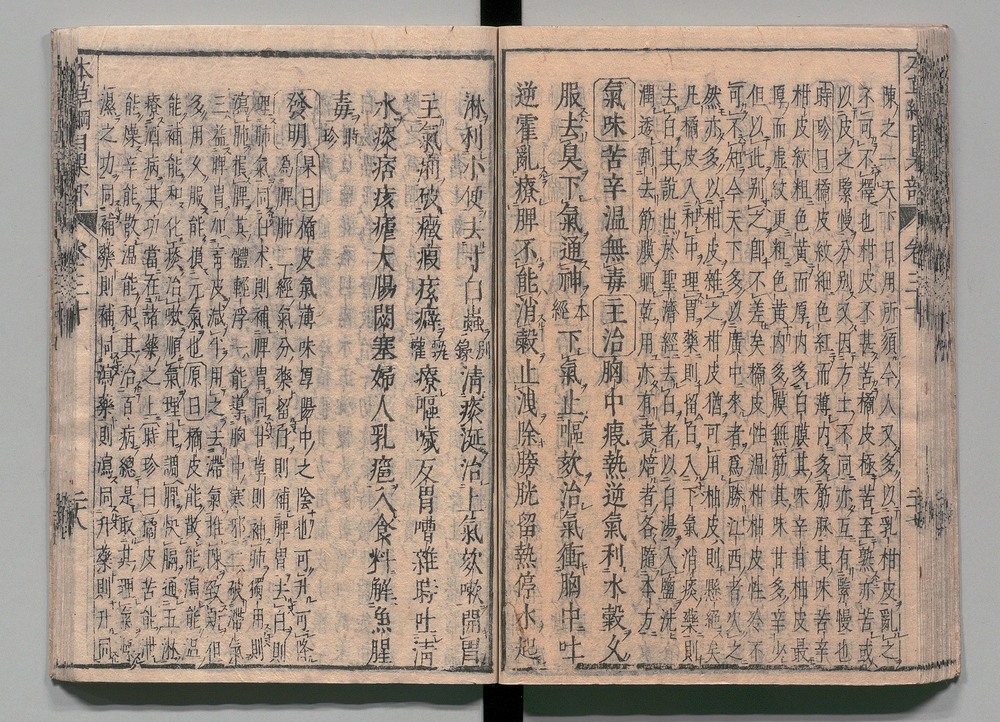 陳之一天下日用所須今人又多以乳柑皮亂之
不可不擇也柑皮不甚苦橘皮極苦至熟亦苦或
以皮之緊慢分別又因方土不同亦互有緊慢也
時珍曰橘皮紋細色紅而薄内多筋脉其味苦辛
柑皮紋粗色黃而厚内多白膜其味辛甘柚皮最
厚而虛紋更粗色黃内多膜無筋其味甘多辛少
但以此別之即不差矣橘皮性温柑柚皮性冷不
可不知今天下多以廣中來者爲勝江西者次之
然亦多以柑皮雜之柑皮猶可用柚皮則懸絕矣
凡橘皮入和中理胃藥則留白入下氣消痰藥則
去白其說出於聖濟經去白者以白湯入鹽洗
潤透刮去筋膜晒乾用亦有煮焙者各隨本方
氣味苦辛温無毒主治胸中瘕熱逆氣利水穀久
服去臭下氣通神本經下氣止嘔欬治氣衝胸中吐
逆霍亂療脾不能消穀止洩除膀胱留熱停水起
淋利小便去寸白蟲別錄清痰涎治上氣欬嗽開胃
主氣痢破癥瘕痃癖甄權療嘔噦反胃嘈雜時吐清
水痰痞痎瘧大腸閟塞婦人乳癰入食料解魚腥
毒時珍
發明杲曰橘皮氣薄味厚陽中之陰也可升可降
爲脾肺二經氣分藥留白則補脾胃去白則
理肺氣同白术則補脾胃同甘草則補肺獨用則
瀉肺損脾其體輕浮一能導胸中寒邪二破滯氣
三益脾胃加青皮減半用之去滯氣推陳致新但
多用久服能損元氣也原曰橘皮能散能瀉能温
能補能和化痰治嗽順氣理中調脾快膈通五淋
療酒病其功當在諸藥之上時珍曰橘皮苦能泄
能燥辛能散温能和其治百病總是取其理氣燥
濕之功同補藥則補同瀉藥則瀉同升藥則升同
本草綱目果部
卷三十
二十八